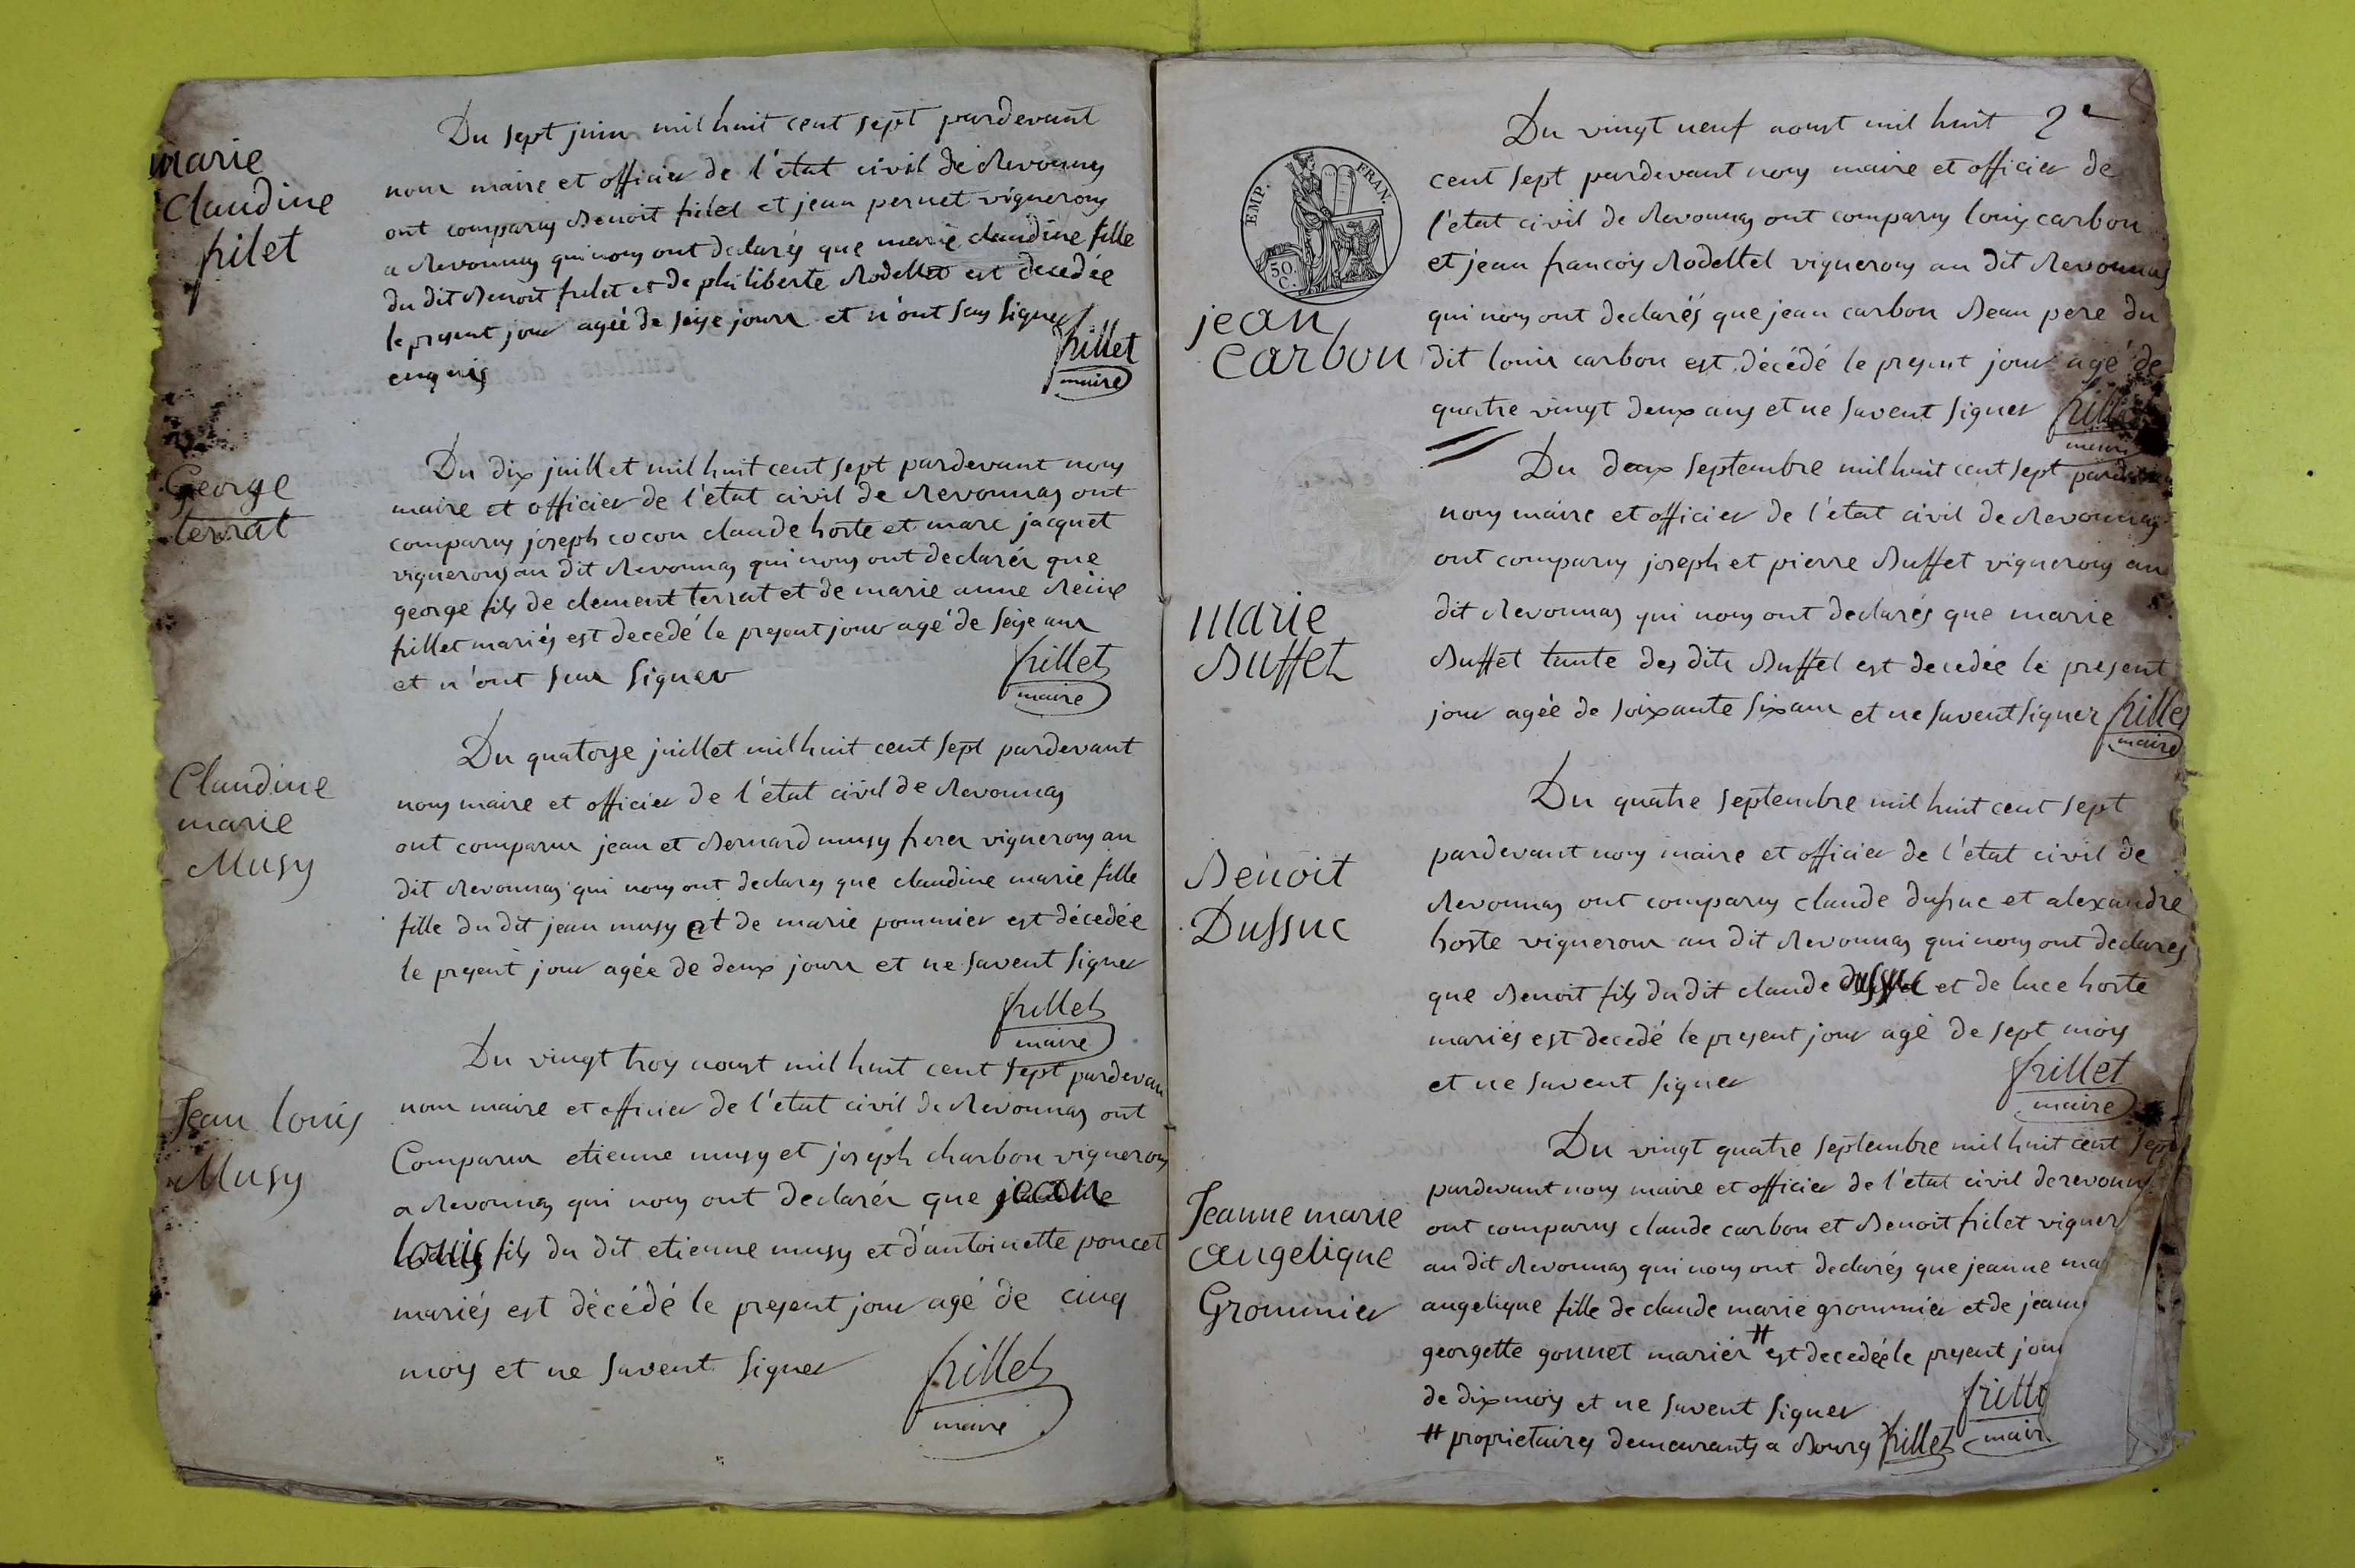 marie
Claudine
frilet
Du sept juin mil huit cent sept pardevant
nous maire et officier de l'état civil de Revonnas
ont comparus Benoit frilet et jean pernet vignerons
a Revonnas qui nous ont declarés que marie claudine fille
du dit Benoit frilet et de philiberte Rodellet est decedée
le present jour agée de seize jours et n'ont sçus signer
enquis
frillet
maire
George
terrat
Du dix juillet mil huit cent sept pardevant nous
maire et officier de l'état civil de Revonnas ont
comparus joseph cocon claude hoste et marc jacquet
vignerons au dit Revonnas qui nous ont declarés que
george fils de clement terrat et de marie anne Reine
frillet mariés est decedé le present jour agé de seize ans
et n'ont sçus signer
frillet
maire
Claudine
marie
Musy
Du quatorze juillet mil huit cent sept pardevant
nous maire et officier de l'état civil de Revonnas
ont comparus jean et Bernard musy freres vignerons au
dit Revonnas qui nous ont declarés que claudine marie fille
fille du dit jean musy et de marie pommier est décedée
le present jour agée de deux jours et ne savent signer
frillet
maire
Jean louis
Musy
Du vingt trois aoust mil huit cent sept pardevan
nous maire et officier de l'état civil de Revonnas ont
Comparus etienne musy et joseph charbon vignerons
a Revonnas qui nous ont declarés que jean
louis fils du dit etienne musy et d'antoinette poncet
mariés est décédé le present jour agé de cinq
mois et ne savent signer
frillet
maire
2e
EMP. FRAN.
50 C.
jean
carbon
Du vingt neuf aoust mil huit
cent sept pardevant nous maire et officier de
l'état civil de Revonnas ont comparus louis carbon
et jean françois Rodellel vignerons au dit Revonnas
qui nous ont declarés que jean carbon Beau pere du
dit louis carbon est décédé le present jour agé de
quatre vingt deux ans et ne savent signer frillet
maire
marie
Buffet
Du deux septembre mil huit cent sept
nous maire et officier de l'état civil de Revonnas
ont comparus joseph et pierre Buffet vignerons au
dit Revonnas qui nous ont declarés que marie
Buffet tante des dits Buffet est decedée le present
jour agée de soixante six ans et ne savent signer frillet
maire
Benoit
Dussuc
Du quatre septembre mil huit cent sept
pardevant nous maire et officier de l'état civil de
Revonnas ont comparus claude dussuc et alexandre
hoste vignerons au dit Revonnas qui nous ont declarés
que Benoit fils du dit claude dussuc et de luce hoste
mariés est decedé le present jour agé de sept mois
et ne savent signer
frillet
maire
Jeanne marie
angelique
Grommier
Du vingt quatre septembre mil huit cent sept
pardevant nous maire et officier de l'état civil de revonn
ont comparus claude carbon et Benoit frilet vigner
au dit Revonnas qui nous ont declarés que jeanne ma
angelique fille de claude marie grommier et de jeann
georgette gonnet mariés # est decedée le present jour
de dix mois et ne savent signer
frille
mair
# proprietaires demeurants a Bourg frillet